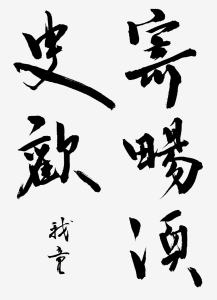 寄暢須
臾歡
我童